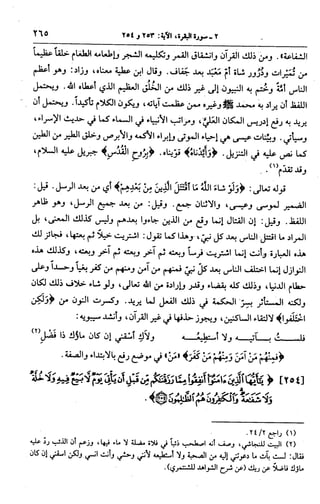 ٢ - سورة البقرة، الآية: ٢٥٣ و ٢٥٤
٢٦٥
الشفاعة». ومن ذلك القرآن وانشقاق القمر وتكليمه الشجر وإطعامه الطعام خلقاً عظيماً
من تُميرات ودُرور شاة أمّ مَعْبَد بعد جفاف. وقال ابن عطية معناه، وزاد: وهو أعظم
الناس أمّة وخُتم به النبيون إلى غير ذلك من الخُلق العظيم الذي أعطاه الله. ويحتمل
اللفظ أن يراد به محمد ﷺ وغيره ممن عظمت آياته، ويكون الكلام تأكيداً. ويحتمل أن
يريد به رفع إدريس المكان العليَّ، ومراتب الأنبياء في السماء كما في حديث الإسراء،
وسيأتي. وبيّنات عيسى هي إحياء الموتى وإبراء الأكمه والأبرص وخلق الطير من الطين
كما نص عليه في التنزيل. ﴿وَأَيَّدْنَاهُ﴾ قوّيناه. ﴿بِرُوحِ الْقُدُسِ﴾ جبريل عليه السلام،
وقد تقدّم(١).
قوله تعالى: ﴿وَلَوْ شَاءَ اللَّهُ مَا اقْتَتَلَ الَّذِينَ مِنْ بَعْدِهِمْ﴾ أي من بعد الرسل. قيل:
الضمير لموسى وعيسى، والاثنان جمع. وقيل: من بعد جميع الرسل، وهو ظاهر
اللفظ. وقيل: إن القتال إنما وقع من الذين جاءوا بعدهم وليس كذلك المعنى، بل
المراد ما اقتتل الناس بعد كل نبيّ، وهذا كما تقول: اشتريت خيلاً ثم بعتها، فجائز لك
هذه العبارة وأنت إنما اشتريت فرساً وبعته ثم آخر وبعته ثم آخر وبعته، وكذلك هذه
النوازل إنما اختلف الناس بعد كل نبيّ فمنهم من آمن ومنهم من كفر بغياً وحسداً وعلى
حطام الدنيا، وذلك كله بقضاء وقدر وإرادة من الله تعالى، ولو شاء خلاف ذلك لكان
ولكنه المستأثر بسرّ الحكمة في ذلك الفعل لما يريد. وكسرت النون من ﴿وَلَكِنِ
اخْتَلَفُوا﴾ لالتقاء الساكنين، ويجوز حذفها في غير القرآن، وأنشد سيبويه:
فلستُ بـآتيـه ولا أستطيعُـه ولاكِ اسْقني إن كان ماؤك ذا فَضْلِ(٢)
﴿فَمِنْهُمْ مَنْ آمَنَ وَمِنْهُمْ مَنْ كَفَرَ﴾ «من» في موضع رفع بالابتداء والصفة.
[٢٥٤] ﴿يَا أَيُّهَا الَّذِينَ آمَنُوا أَنْفِقُوا مِمَّا رَزَقْنَاكُمْ مِنْ قَبْلِ أَنْ يَأْتِيَ يَوْمٌ لَا بَيْعٌ فِيهِ وَلَا خُلَّةٌ
وَلَا شَفَاعَةٌ وَالْكَافِرُونَ هُمُ الظَّالِمُونَ﴾
(١) راجع ٢٤/٢.
(٢) البيت للنجاشي، وصف أنه اصطحب ذئباً في فلاة مضلة لا ماء فيها، وزعم أن الذئب رد عليه
فقال: لست بآت ما دعوتني إليه من الصحبة ولا أستطيعه لأنني وحشي وأنت انسي ولكن اسقني إن كان
ماؤك فاضلاً عن ريك (عن شرح الشواهد للشنتمري).